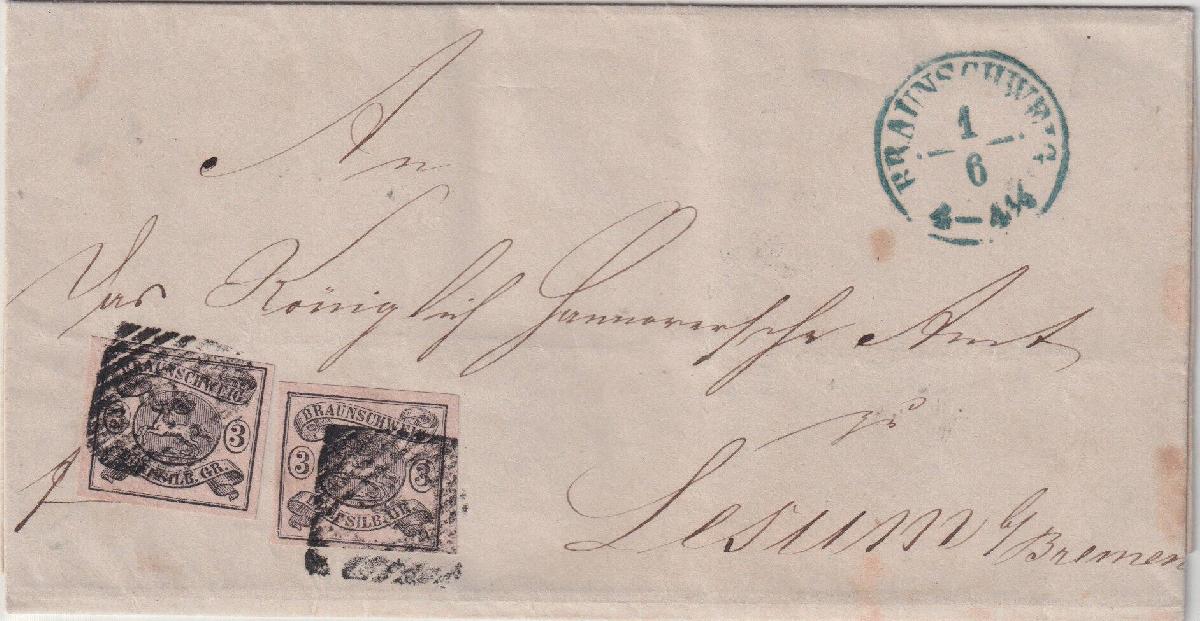 BRAUNSCHWEIG
1
6
4—4¼
An
das Königlich Hannoversche Amt
zu
Lesum b/Bremen
BRAUNSCHWEIG
3 3
SILB. GR.
BRAUNSCHW
3 3
SILB